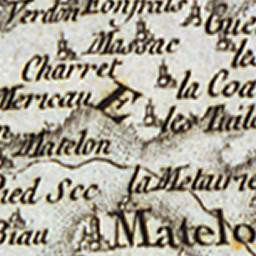 Verdon Lonfrais
Massac
Charret
Mericau E
la Coa
les Tuile
Matelon
Pied Sec la Metairie
Biau Matelo